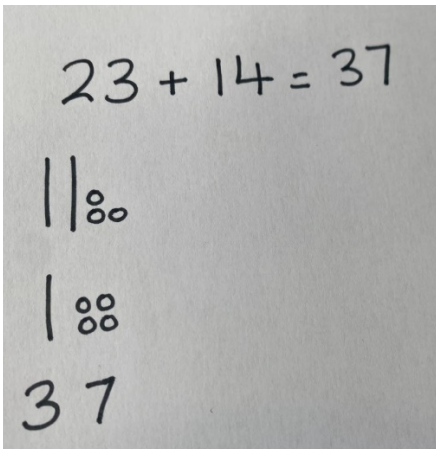 23 + 14 = 37
37